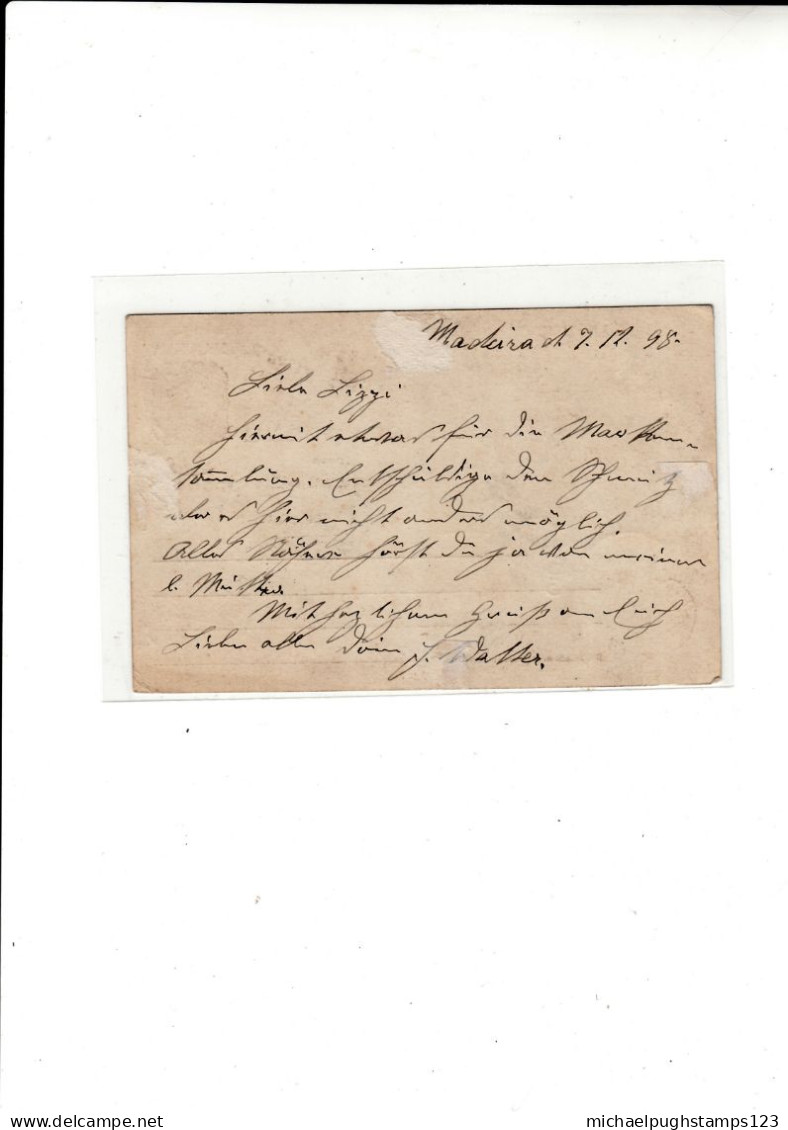 Madeira d. 7. 12. 98.
Liebe Lizzi
Hiermit etwas für die Marken-
sammlung. Entschuldige den
hier nicht anders möglich.
Alles Nähere hörst du ja von meiner
l. Mutter.
Mit herzlichem Gruß an Euch
Lieben alle Dein J. Walter.
delcampe.net
michaelpughstamps123